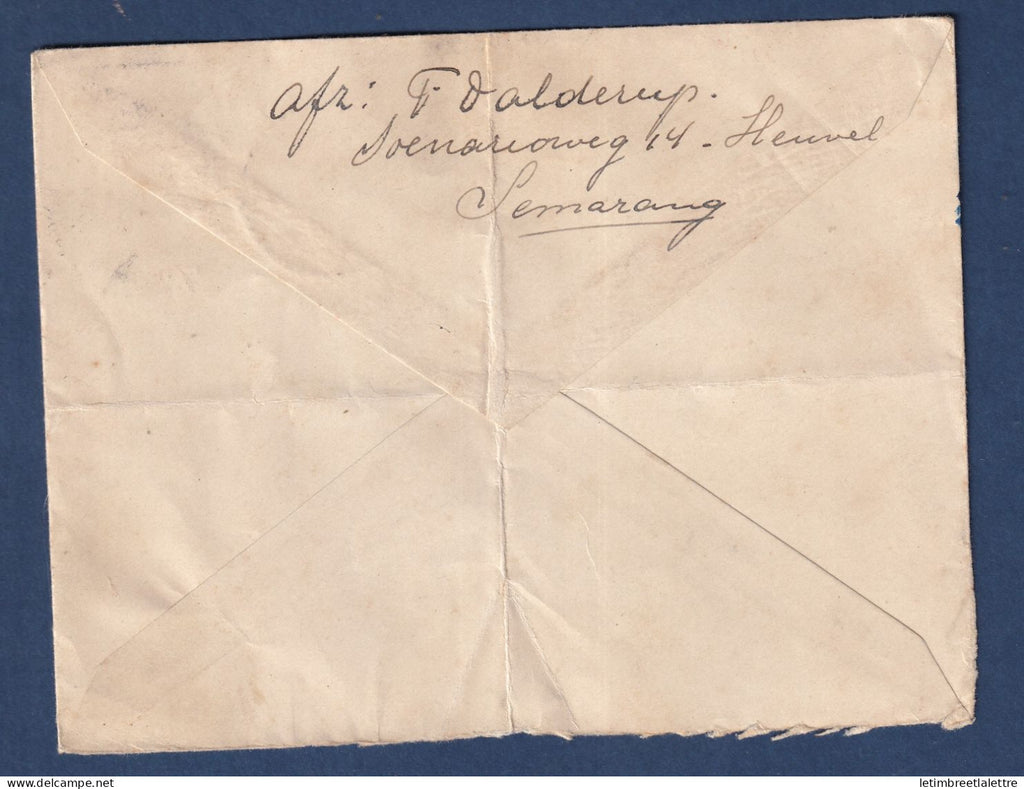 afz: F Dalderup.
Soenarioweg 14 - Heuvel
Semarang
delcampe.net
letimbreetlalettre